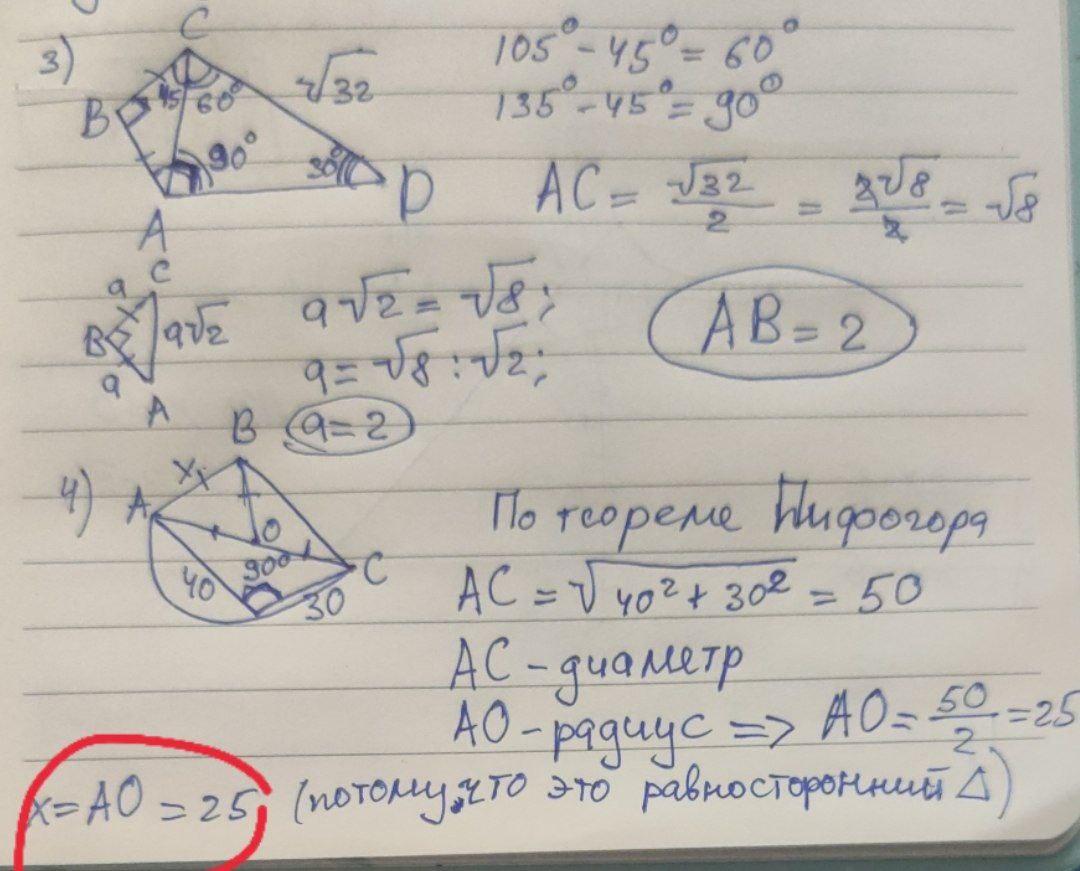 3)
C
B
A
D
45
60°
√32
90°
30°
105° - 45° = 60°
135° - 45° = 90°
AC = √32/2 = 2√8/2 = √8
C
a
B
a√2
a
A
a√2 = √8;
a = √8 : √2;
a = 2
AB = 2
4)
B
x
A
O
90°
C
40
30
По теореме Пифогора
AC = √40² + 30² = 50
AC - диаметр
AO - радиус => AO = 50/2 = 25
x = AO = 25 (потому, что это равносторонний Δ)